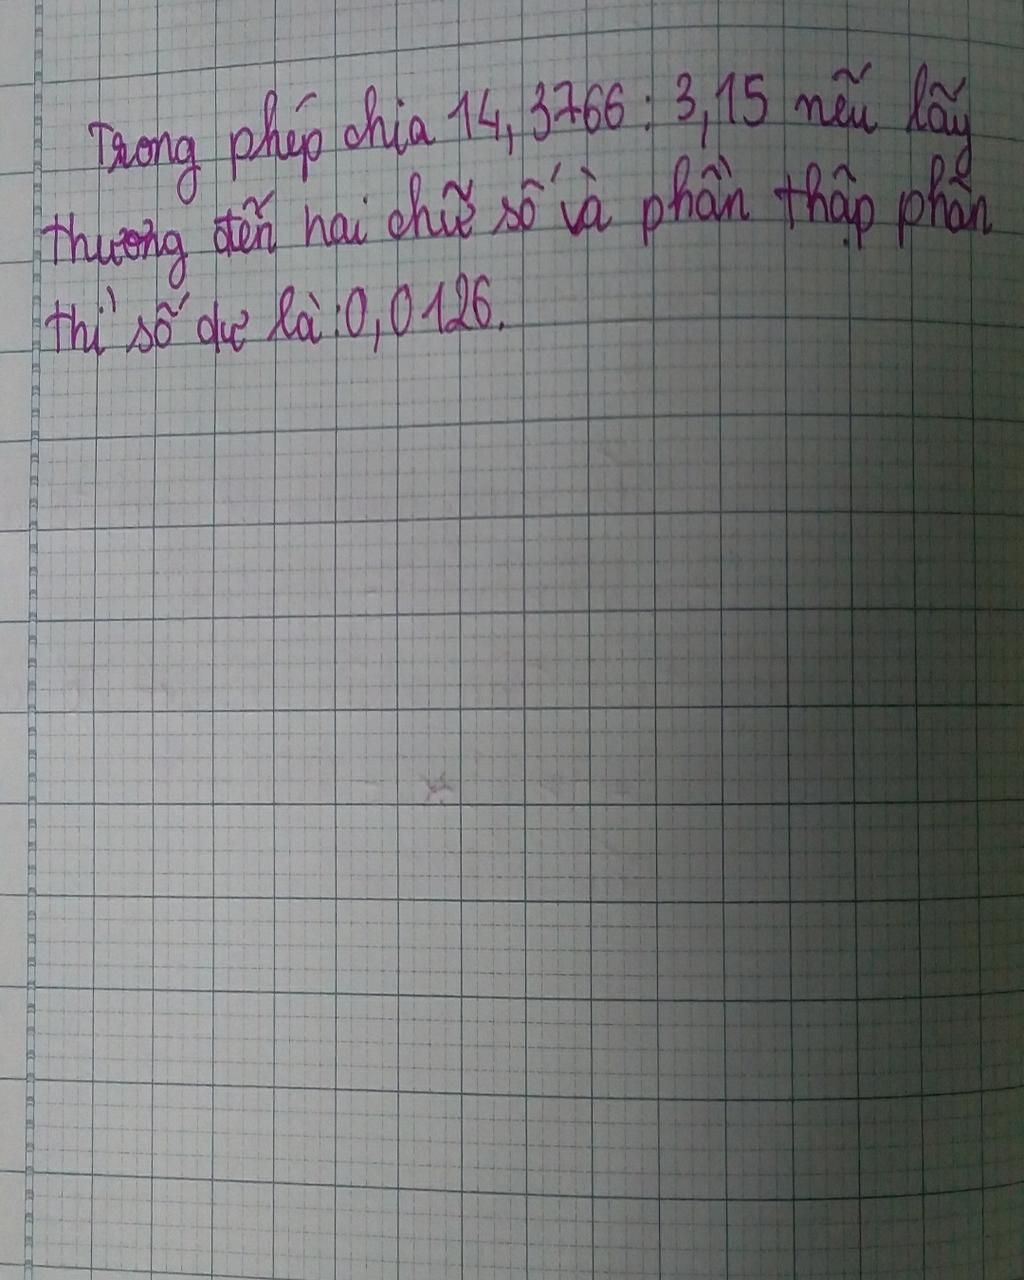 Trong phép chia 14,3766 : 3,15 nếu lấy
thương đến hai chữ số và phần thập phân
thì số dư là : 0,0126.